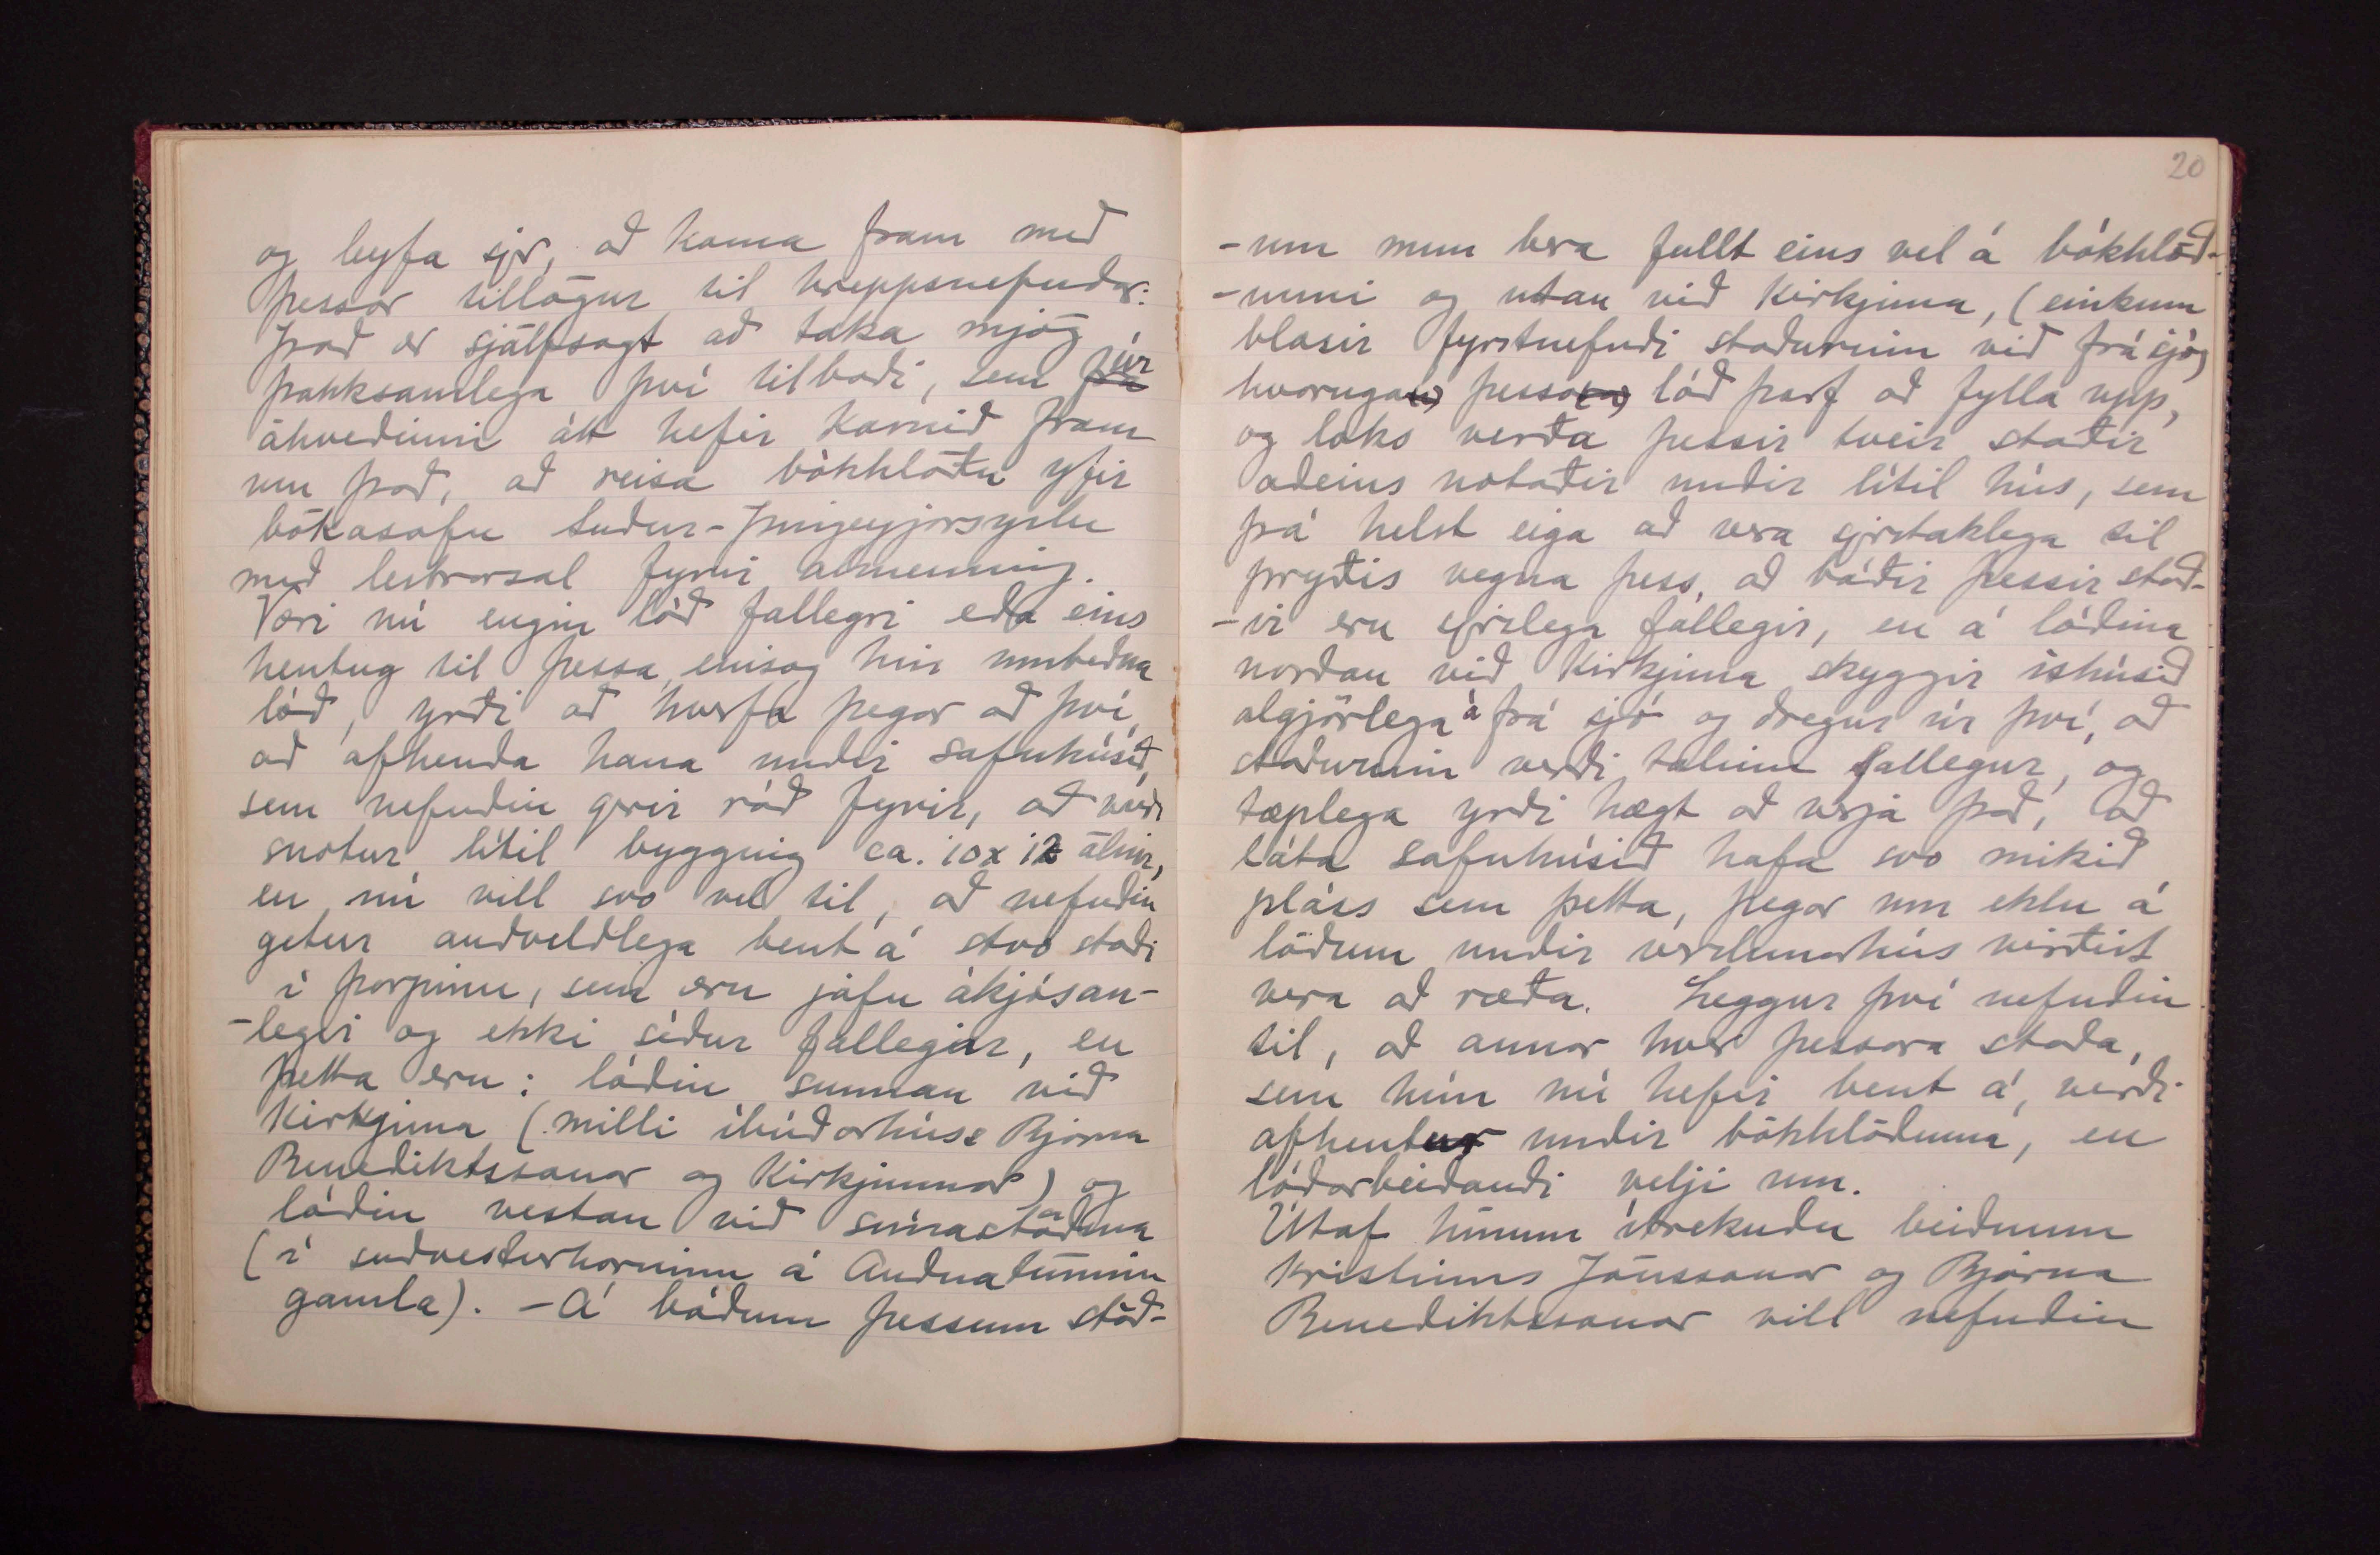 og leyfa sjer, að koma fram með
þessar tillögur til hreppsnefndar:
Það er sjálfsagt að taka mjög
þakksamlega því tilboði, sem úr
ákveðinni átt hefir komið fram
um það, að reisa bókhlöðu yfir
bókasafn Suður-Þingeyjarsýslu
með lestrarsal fyrir almenning.
Væri nú engin lóð fallegri eða eins
hentug til þessa, einsog hin umbeðna
lóð, yrði að hverfa þegar að því,
að afhenda hana undir safnhúsið,
sem nefndin gerir ráð fyrir, að verði
snotur lítil bygging ca. 10 x 12 álnir,
en nú vill svo vel til, að nefndin
getur auðveldlega bent á tvo staði
í þorpinu, sem eru jafn ákjósan-
-legir og ekki síður fallegir, en
þetta eru: lóðin sunnan við
Kirkjuna (milli íbúðarhúss Bjarna
Benediktssonar og Kirkjunnar) og
lóðin vestan við símastöðina
(í suðvesturhorninu á Auðnatúninu
gamla). - Á báðum þessum stöð-
20
-um mun bera fullt eins vel á bókhlöð-
-unni og utan við Kirkjuna, (einkum
blasir fyrstnefndi staðurinn við frá sjó)
hvoruga þessa lóð þarf að fylla upp,
og loks verða þessir tveir staðir
aðeins notaðir undir lítil hús, sem
þá helst eiga að vera sjerstaklega til
prýðis vegna þess, að báðir þessir stað-
-ir eru sjerlega fallegir, en á lóðina
norðan við Kirkjuna skyggir íshúsið
algjörlega á frá sjó og dregur úr því, að
staðurinn verði talinn fallegur, og
tæplega yrði hægt að verja það, að
láta safnhúsið hafa svo mikið
pláss sem þetta, þegar um eklu á
lóðum undir verslunarhús virðist
vera að ræða. Leggur því nefndin
til, að annar hver þessara staða,
sem hún nú hefir bent á, verði
afhentur undir bókhlöðuna, en
lóðarbeiðandi velji um.
Útaf hinum ítrekuðu beiðnum
Kristins Jónssonar og Bjarna
Benediktssonar vill nefndin